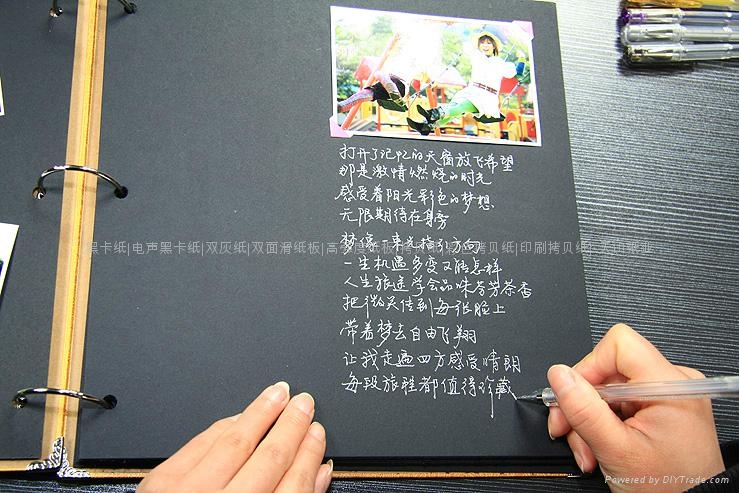 打开了记忆的天窗放飞希望
那是激情燃烧的时光
感受着阳光彩色的梦想
无限期待在身旁
梦像一束光指引方向
黑卡纸|电声黑卡纸|双灰纸|双面滑纸板|高
拷贝纸|印刷拷贝纸
一生机遇多变又能怎样
人生旅途学会品味芬芳茶香
把微笑佳到每张脸上
带着梦去自由飞翔
让我走遍四方感受晴朗
每段旅程都值得珍藏
Powered by DIYTrade.com